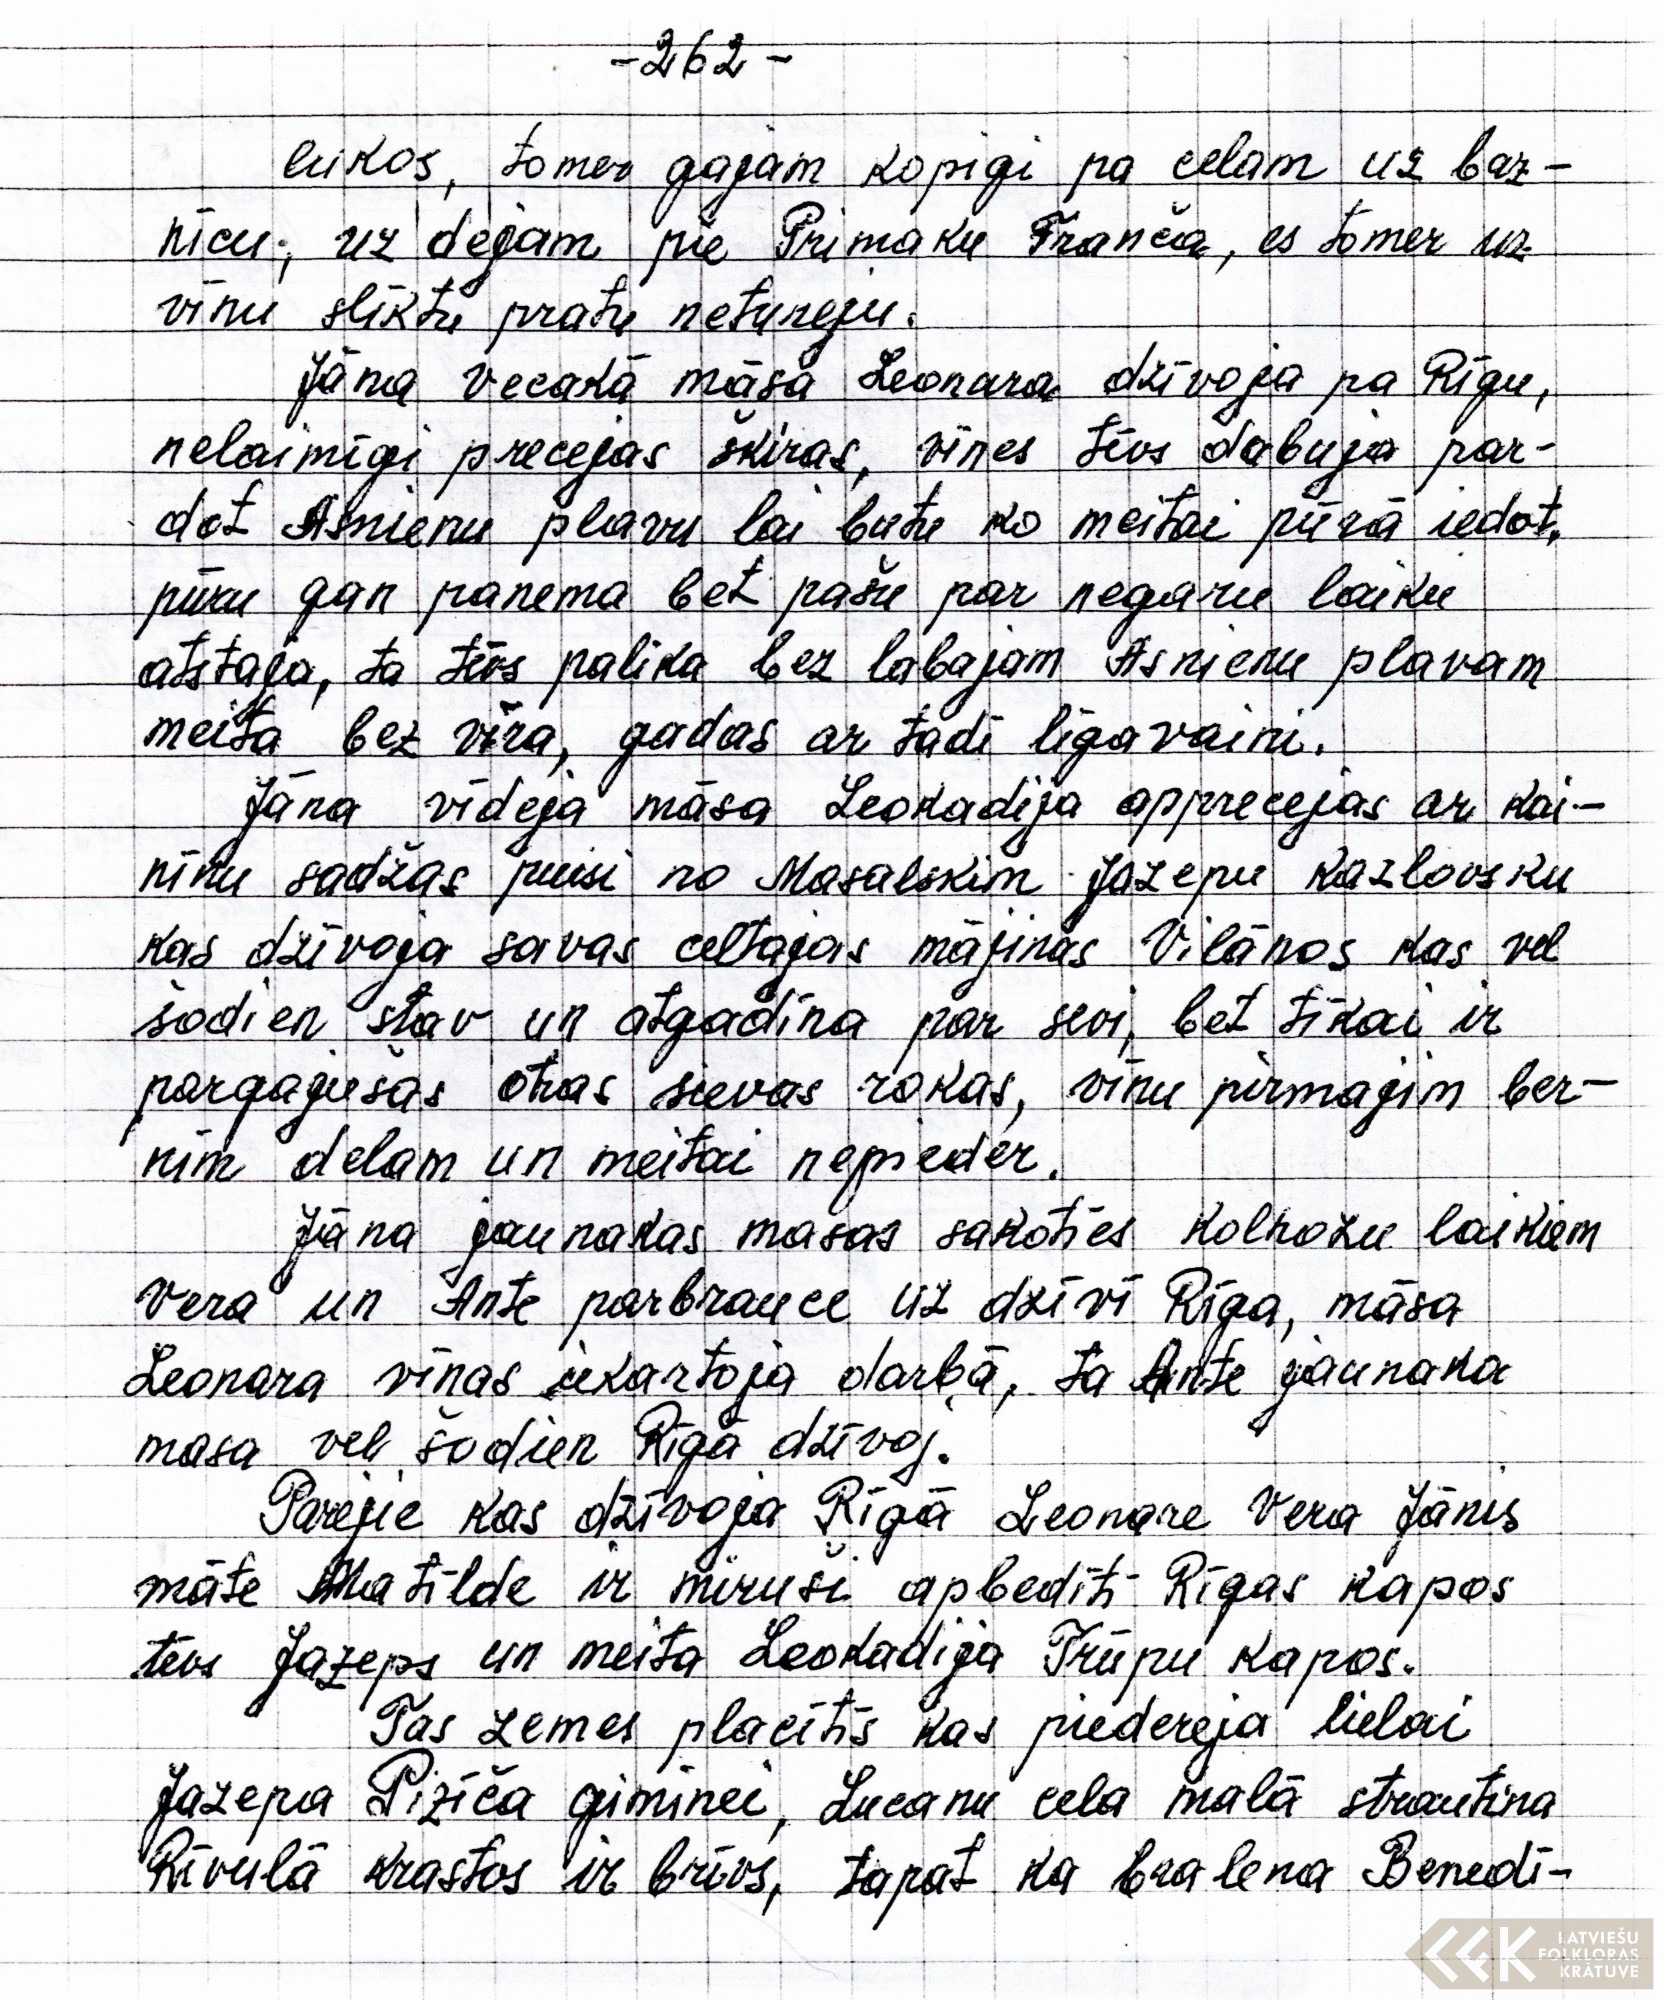 -262-
eikos, tomer gajam kopigi pa celam uz baz-
nīcu, uz dejam pie Primaku Franča, es tomer uz
vīnu sliktu pratu netureju.
Jāna vecakā māsa Leonara dzīvoja pa Rīgu,
nelaimīgi precejas škiras, vīnes tēvs dabuja par-
dot Asnienu plavu lai butu ko meitai pūrā iedot,
pūru gan panema bet pašu par negaru laiku
atstaja, ta tēvs palika bez labajam Asnienu plavam
meita bez vīra, gadas ar tadi līgavaini.
Jāna vīdeja māsa Leokadija apprecejas ar kai-
nīnu sadžas puisi no Masalskim Jazepu Kazlovsku
kas dzīvoja savas celtajas mājinās Vilānos kas vel
šodien stav un atgadīna par sevi, bet tikai ir
pargajušas otras sievas rokas, vīnu pirmajim ber-
nim delam un meitai nepieder.
Jāna jaunakas masas sakoties kolhozu laikiem
Vera un Ante parbrauce uz dzīvi Rīga, māsa
Leonara vīnas iekartoja darbā, ta Ante jaunaka
masa vel šodien Rīgā dzīvoj.
Parejie kas dzīvoja Rīgā Leonare Vera Jānis
māte Matilde ir miruši apbedīti Rīgas kapos
tēvs Jazeps un meita Leokadija Trūpu kapos.
Tas zemes placītis kas piedereja lielai
Jazepa Pizīča giminei, Lucanu cela malā strautina
Rīvulā krastos ir brīvs, tapat ka bralena Benedi-
LATVIEŠU
FOLKLORAS
KRĀTUVE